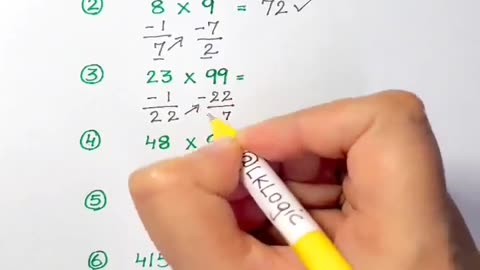 ② 8 × 9 = 72 ✓
-1 ↗ -7
7 2
③ 23 × 99 =
-1 ↗ -22
22 7
④ 48 ×
⑤
⑥ 415
@LKLogic